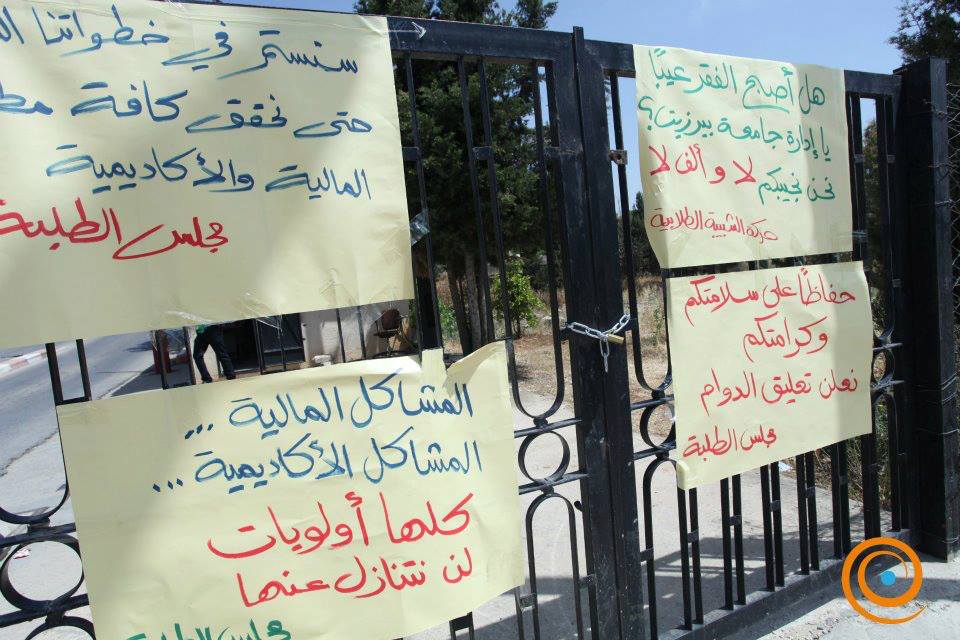 سنستمر في خطواتنا
حتى نحقق كافة
المالية والأكاديمية
مجلس الطلبة
هل أصبح الفقر عيبًا
يا إدارة جامعة بيرزيت؟
نحن نجيبكم لا وألف لا
حركة الشبيبة الطلابية
حفاظًا على سلامتكم
وكرامتكم
نعلن تعليق الدوام
مجلس الطلبة
المشاكل المالية ...
المشاكل الأكاديمية ...
كلها أولويات
لن نتنازل عنها
مجلس الطلبة